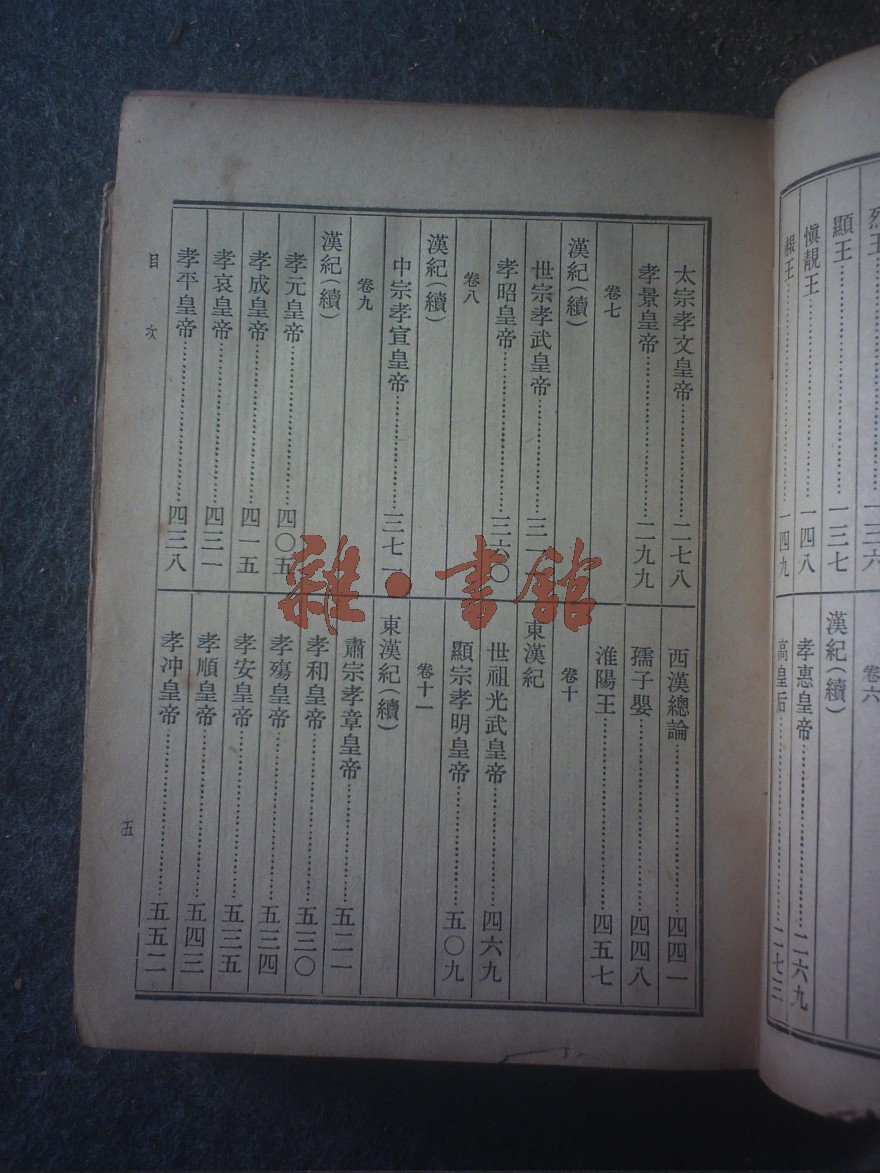 太宗孝文皇帝……二七八
孝景皇帝……二九九
卷七
漢紀(續)
世宗孝武皇帝……三一
孝昭皇帝……三六〇
卷八
漢紀(續)
中宗孝宣皇帝……三七一
卷九
漢紀(續)
孝元皇帝……四〇五
孝成皇帝……四一五
孝哀皇帝……四三一
孝平皇帝……四三八
西漢總論……四四一
孺子嬰……四四八
淮陽王……四五七
卷十
東漢紀
世祖光武皇帝……四六九
顯宗孝明皇帝……五〇九
卷十一
東漢紀(續)
肅宗孝章皇帝……五二一
孝和皇帝……五三〇
孝殤皇帝……五三四
孝安皇帝……五三五
孝順皇帝……五四三
孝冲皇帝……五五二
目次
五
烈王……一三六
顯王……一三七
慎靚王……一四八
赧王……一四九
卷六
漢紀(續)
孝惠皇帝……二六九
高皇后……二七三
雜·書館